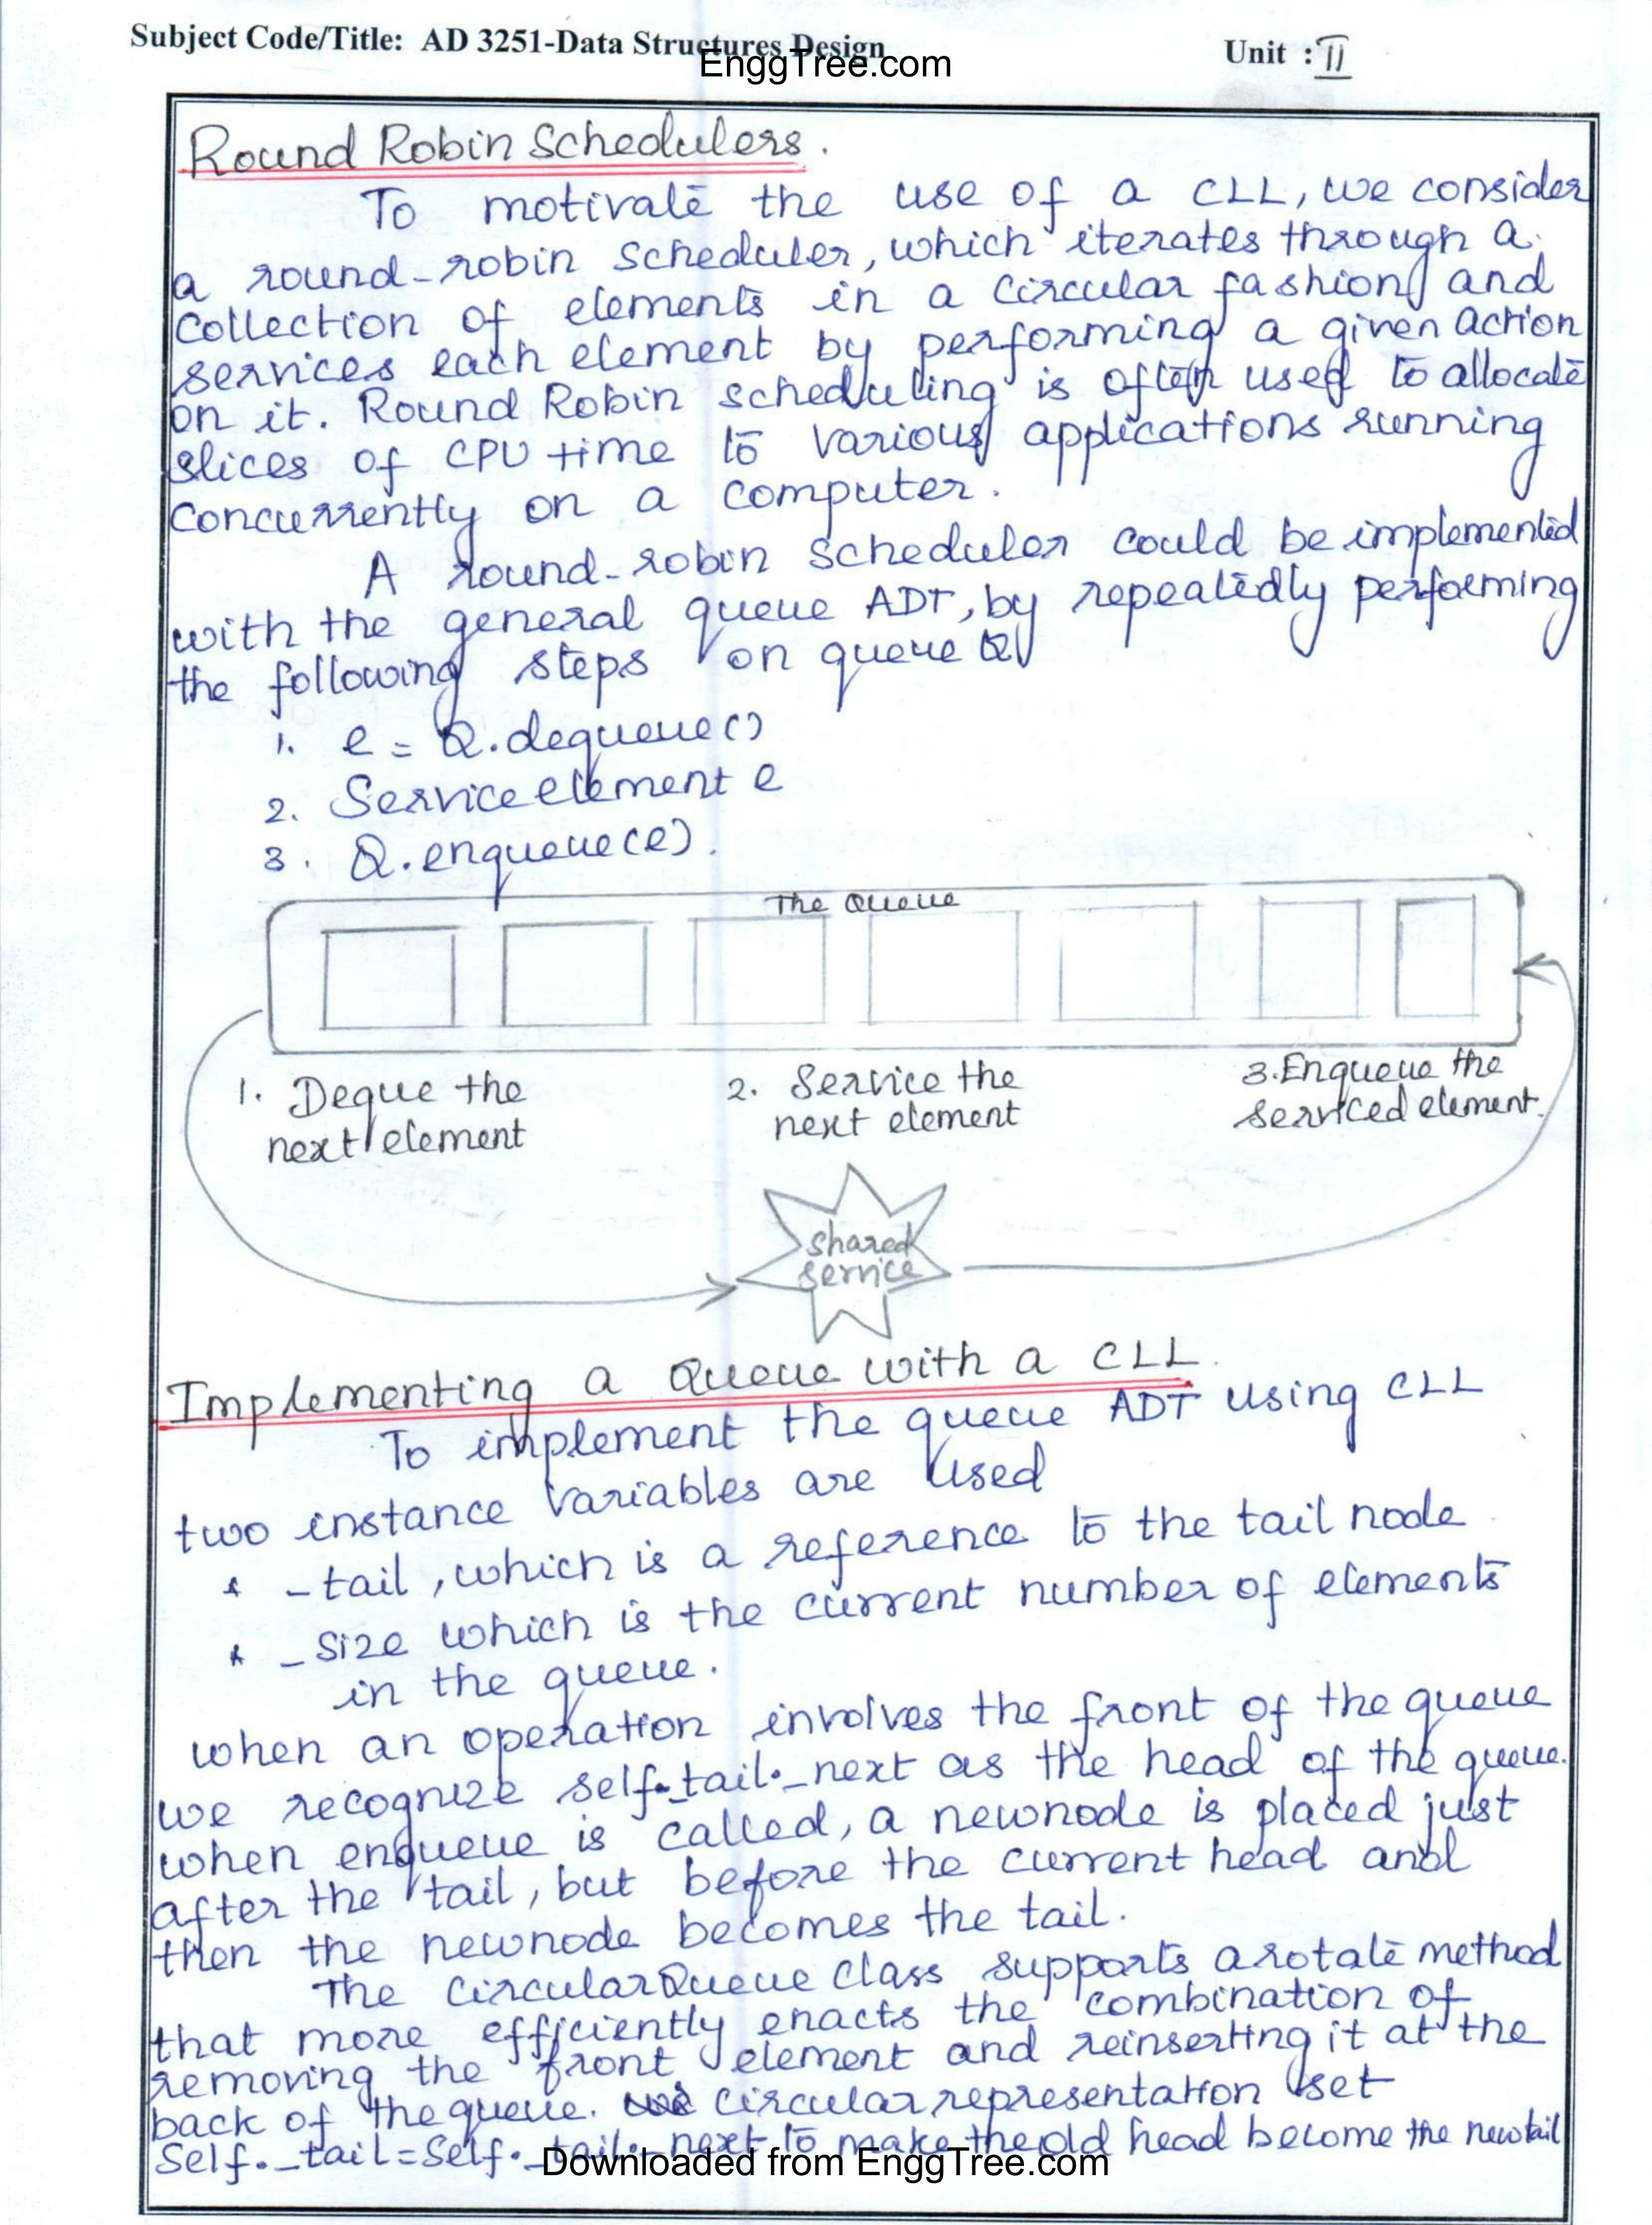 Subject Code/Title: AD 3251-Data Structures Design
EnggTree.com
Unit : II
Round Robin Schedulers.
To motivate the use of a CLL, we consider
a round-robin scheduler, which iterates through a
collection of elements in a circular fashion and
services each element by performing a given action
on it. Round Robin scheduling is often used to allocate
slices of CPU time to various applications running
concurrently on a computer.
A round-robin scheduler could be implemented
with the general queue ADT, by repeatedly performing
the following steps on queue Q
1. e = Q.dequeue()
2. Service element e
3. Q.enqueue(e).
The Queue
1. Deque the
next element
2. Service the
next element
3. Enqueue the
serviced element.
Shared
Service
Implementing a Queue with a CLL.
To implement the queue ADT using CLL
two instance variables are used
* _tail, which is a reference to the tail node
* _size which is the current number of elements
in the queue.
when an operation involves the front of the queue
we recognize self._tail._next as the head of the queue.
when enqueue is called, a newnode is placed just
after the tail, but before the current head and
then the newnode becomes the tail.
The CircularQueue class supports a rotate method
that more efficiently enacts the combination of
removing the front element and reinserting it at the
back of the queue. circular representation set
Self._tail = Self._tail._next to make the old head become the new tail
Downloaded from EnggTree.com